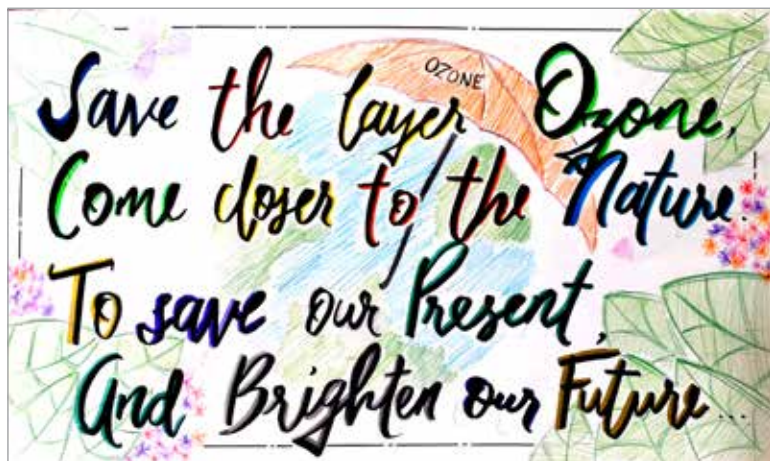 OZONE
Save the layer Ozone,
Come closer to the Nature.
To save our Present,
And Brighten our Future...